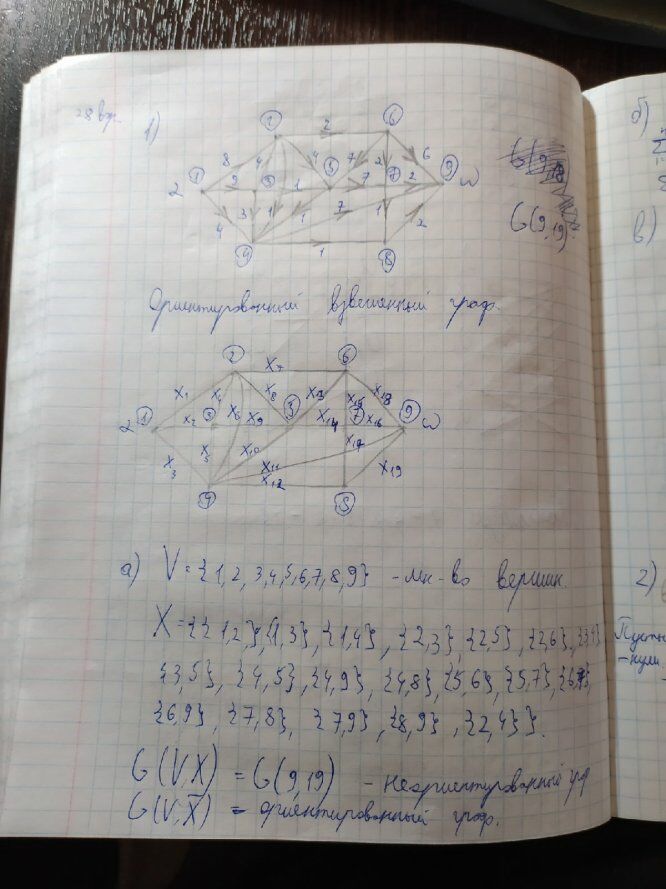 28 вар.
1)
2 6
8 4 4 7 2 6
2 1 9 3 1 5 7 7 2 9 ω
4 3 1 1 7 1 2
4 1 8
G(9,19)
Ориентированный взвешенный граф.
2 x7 6
x1 x4 x8 x13 x15 x18
2 1 x2 3 x6 x9 5 x14 7 x16 9 ω
x3 x5 x10 x11 x17 x19
4 x12 8
а) V={1,2,3,4,5,6,7,8,9} - мн-во вершин.
X={{1,2},{1,3},{1,4},{2,3},{2,5},{2,6},{3,4}
{3,5},{4,5},{4,9},{4,8},{5,6},{5,7},{6,7},
{6,9},{7,8},{7,9},{8,9},{2,4}}.
G(V,X) = G(9,19) - неориентированный граф
G(V,X̄) = ориентированный граф.
б)
в)
2)
Пусть
- нули